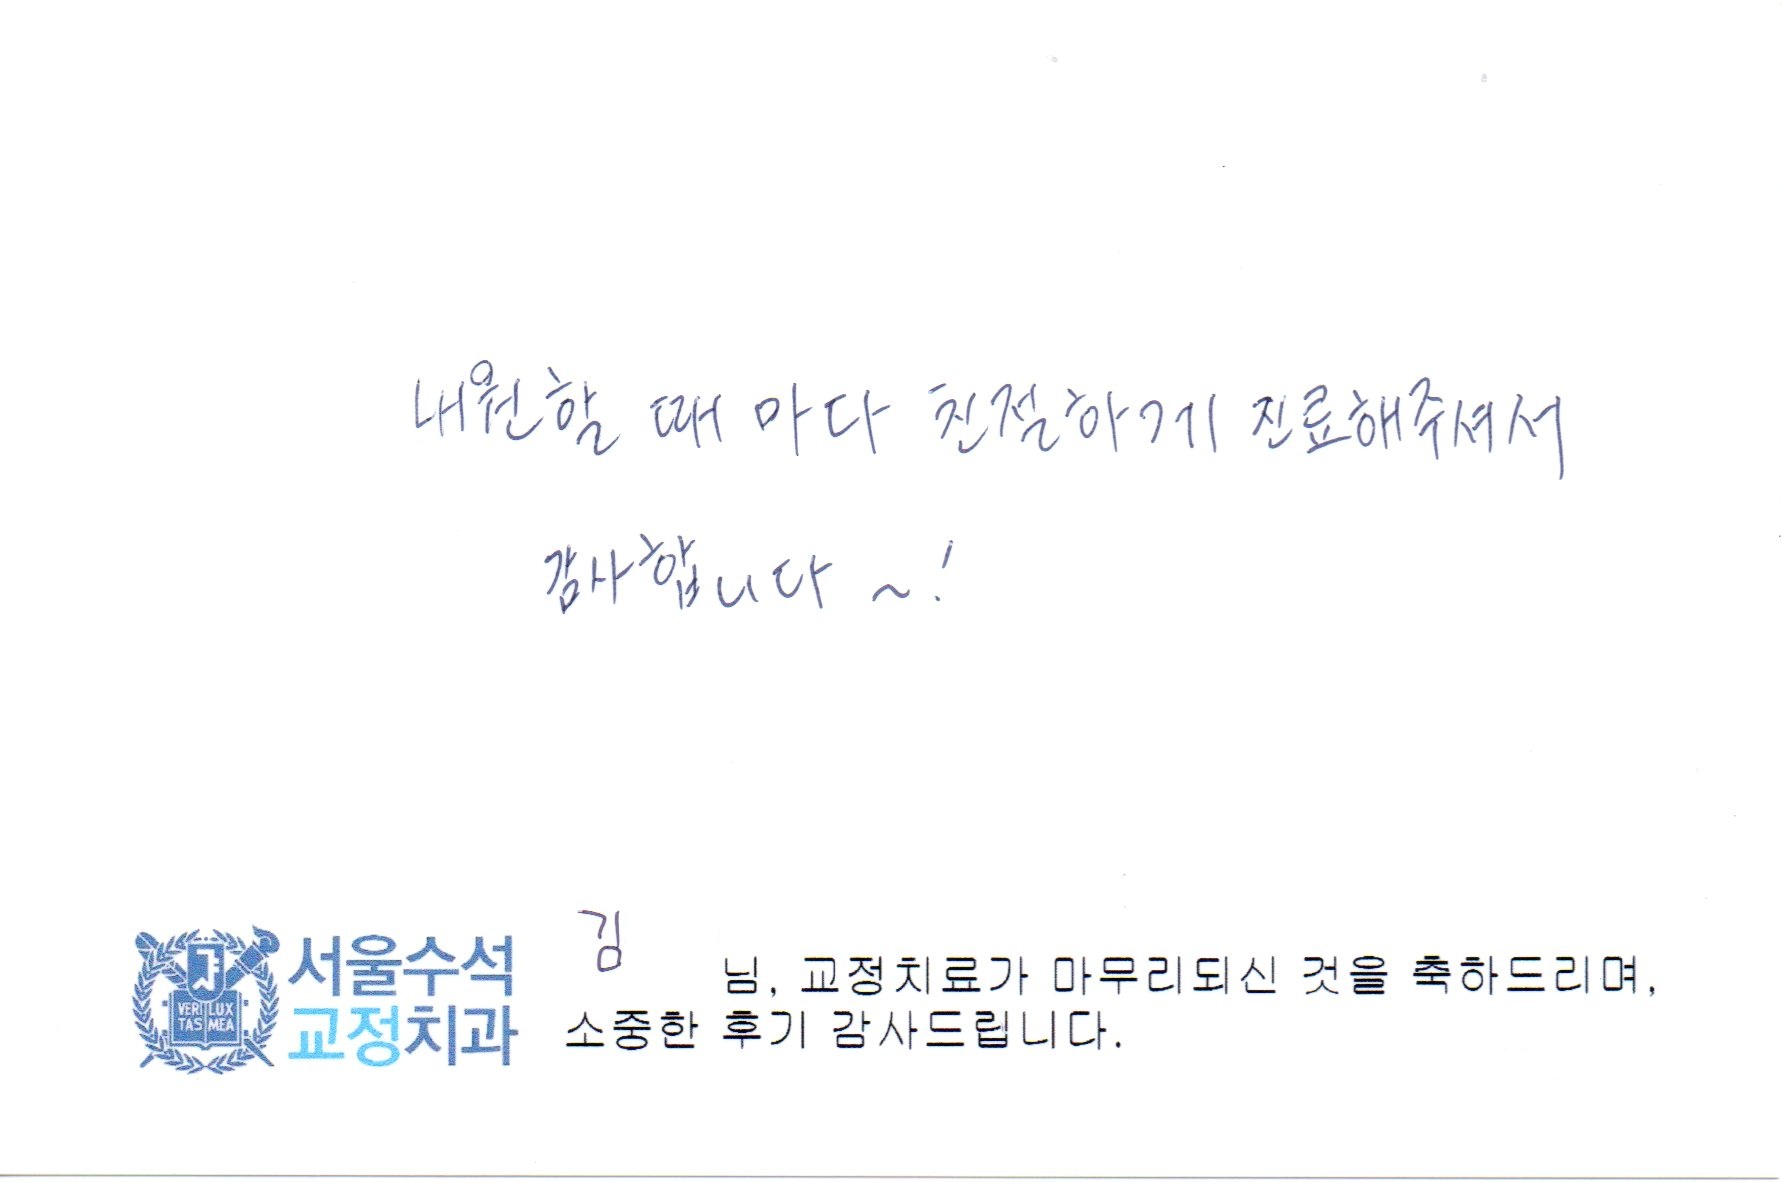 내원할 때 마다 친절하게 진료해주셔서
감사합니다 ~!
김
님, 교정치료가 마무리되신 것을 축하드리며,
소중한 후기 감사드립니다.
서울수석
교정치과
VERI LUX
TAS MEA